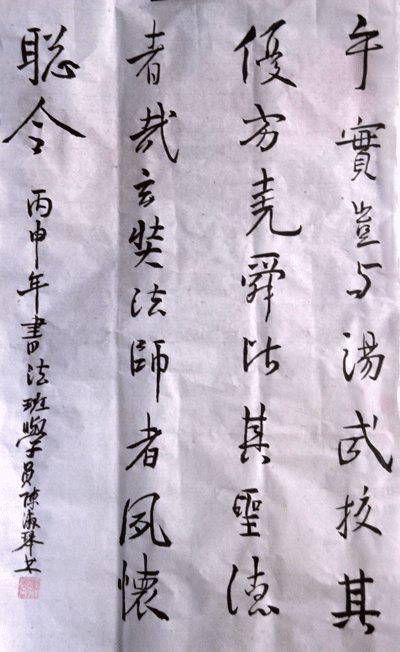 于實豈与湯武挍其
優劣堯舜比其聖徳
者哉玄奘法師者夙懷
聡令
丙申年書法班學員陳淑琴书